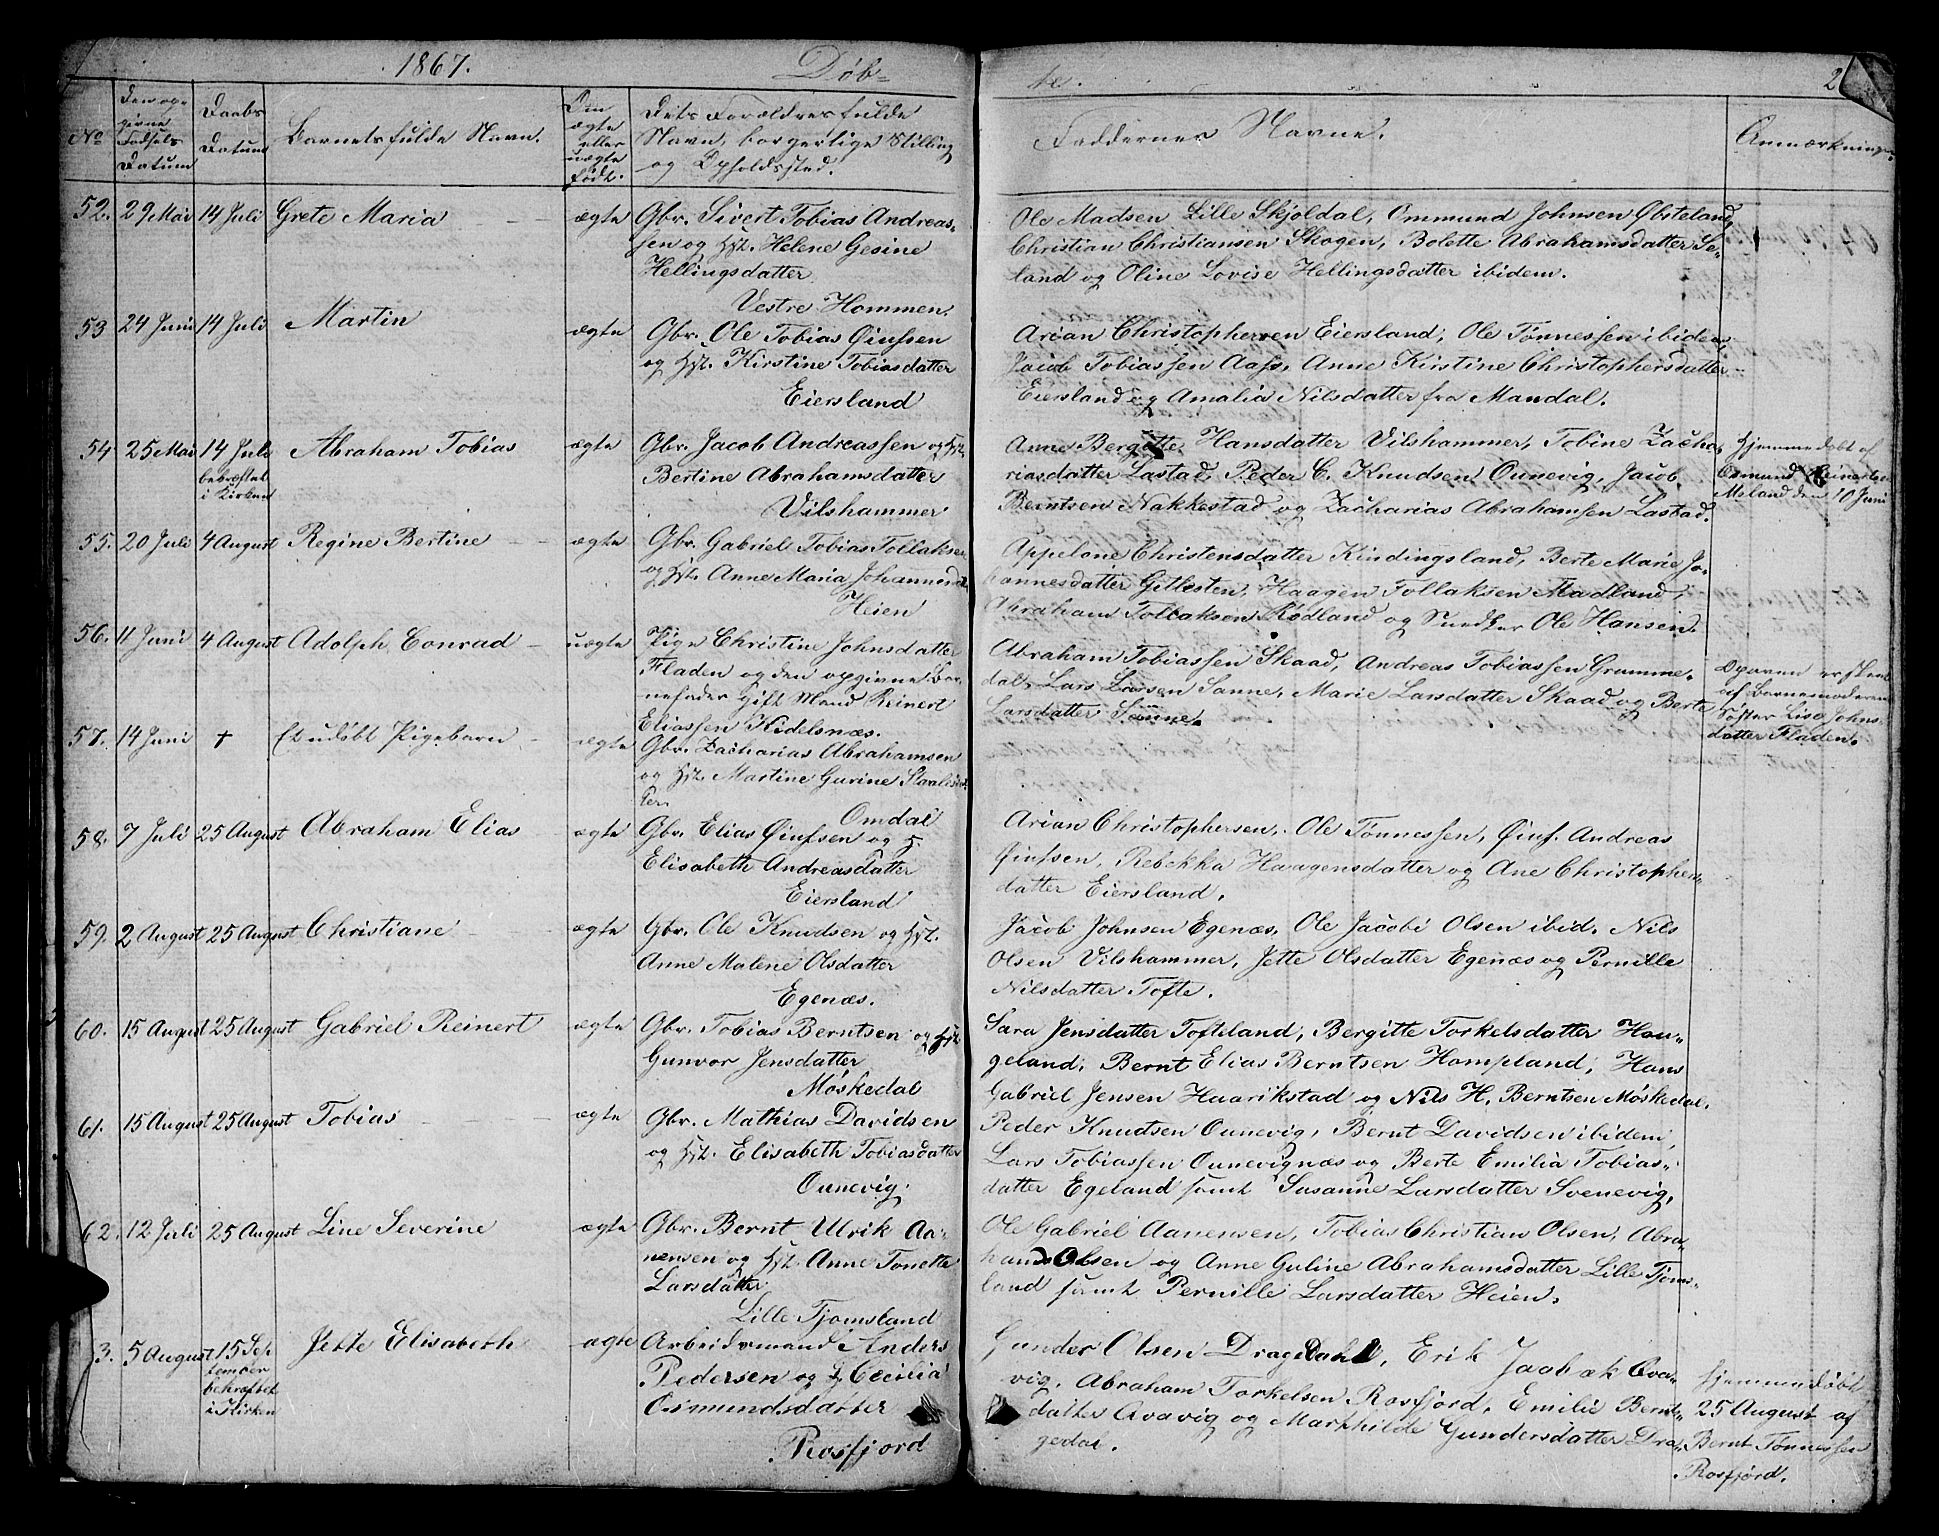 1867.
Døb-
te.
2
No
Den op-
givne
Fødsels
Datum
Daabs
Datum
Barnets fulde Navn.
Om
ægte
eller
uægte
født.
Dets Forældres fulde
Navn, borgerlige Stilling
og Opholdssted.
Faddernes Navne.
Anmærkninger
52. 29 Mai 14 Juli Grete Maria ægte Gbr. Sivert Tobias Andreas-
sen og Hst. Helene Gesine
Hellingsdatter
Vestre Hommen.
Ole Madsen Lille Skjoldal, Ommund Johnsen Øbsteland,
Christian Christiansen Skogen, Bolette Abrahamsdatter Se-
land og Oline Lovise Hellingsdatter ibidem.
53 24 Juni 14 Juli Martin ægte Gbr. Ole Tobias Øiufsen
og Hst. Kirstine Tobiasdatter
Eiersland
Arian Christophersen Eiersland, Ole Tønnessen ibidem,
Jacob Tobiassen Aass, Anne Kirstine Christophersdatter
Eiersland og Amalia Nilsdatter fra Mandal.
54 25 Mai 14 Juli Abraham Tobias ægte Gbr. Jacob Andreassen og Hst.
bekræftet
i Kirken
Bertine Abrahamsdatter
Vilshammer
Anne Bergitte Hansdatter Vilshammer, Tobine Zacha-
riasdatter Lastad, Peder C. Knudsen Ounevig, Jacob
Berntsen Nakkestad og Zacharias Abrahamsen Lastad.
Hjemmedøbt af
Osmund Reinertsen
Meland den 10 Juni
55. 20 Juli 4 August Regine Bertine ægte Gbr. Gabriel Tobias Tollaksen
og Hst. Anne Maria Johannesd.
Heien
Appelone Christensdatter Kindingsland, Berte Marie Jo-
hannesdatter Gitlesten, Haagen Tollaksen Madland,
Abraham Tollaksen Rødland og Snedker Ole Hansen.
56. 11 Juni 4 August Adolph Conrad uægte Pige Christine Johnsdatter
Fladen og den opgivne Bar-
nefader Gift Mand Reinert
Eliassen Kidelsnæs.
Abraham Tobiassen Skaad, Andreas Tobiassen Gramme-
dal, Lars Larsen Sanne, Marie Larsdatter Skaad og Berte
Larsdatter Sanne.
af Barnemoderen
Søster Lise Johns-
datter Fladen.
57. 14 Juni + Et udøbt Pigebarn ægte Gbr. Zacharias Abrahamsen
og Hst. Martine Gurine Staalesdat-
ter
Omdal
58. 7 Juli 25 August Abraham Elias ægte Gbr. Elias Øiufsen og H.
Elisabeth Andreasdatter
Eiersland
Arian Christophersen, Ole Tønnessen, Øiuf. Andreas
Øiufsen, Rebekka Haagensdatter og Ane Christophers-
datter Eiersland.
59. 2 August 25 August Christiane ægte Gbr. Ole Knudsen og Hst.
Anne Malene Olsdatter
Egenæs.
Jacob Johnsen Egenæs, Ole Jacobi Olsen ibid. Nils
Olsen Vilshammer, Jette Olsdatter Egenæs og Pernille
Nilsdatter Tofte.
60. 15 August 25 August Gabriel Reinert ægte Gbr. Tobias Berntsen og Hst.
Gunvor Jensdatter
Møskedal
Sara Jensdatter Tofteland, Bergitte Torkelsdatter Hau-
geland, Bernt Elias Berntsen Hompland, Hans
Gabriel Jensen Haarikstad og Nils H. Berntsen Møskedal.
61. 15 August 25 August Tobias ægte Gbr. Mathias Davidsen
og Hst. Elisabeth Tobiasdatter
Ounevig.
Peder Knudsen Ounevig, Bernt Davidsen ibidem,
Lars Tobiassen Ounevignæs og Berte Emilia Tobias-
datter Egeland samt Susanne Larsdatter Svenevig,
62. 12 Juli 25 August Line Severine ægte Gbr. Bernt Ulrik Aa-
nensen og Hst. Anne Tonette
Larsdatter
Lille Tjomsland
Ole Gabriel Aanensen, Tobias Christian Olsen, Abra-
ham Olsen og Anne Guline Abrahamsdatter Lille Tjoms-
land samt Pernille Larsdatter Heien.
3. 5 August 15 Sep- Jette Elisabeth ægte Arbeidsmand Anders
tember
bekræftet
i Kirken
Pedersen og H. Cecilia
Osmundsdatter
Rosfjord
Gunder Olsen Dragedahl, Erik
vig. Abraham Torkelsen Rosfjord, Emilie Bernt-
datter Qvavig og Markhilde Gundersdatter Dra-
gedal.
Hjemmedøbt
25 August af
Bernt Tønnessen
Rosfjord.